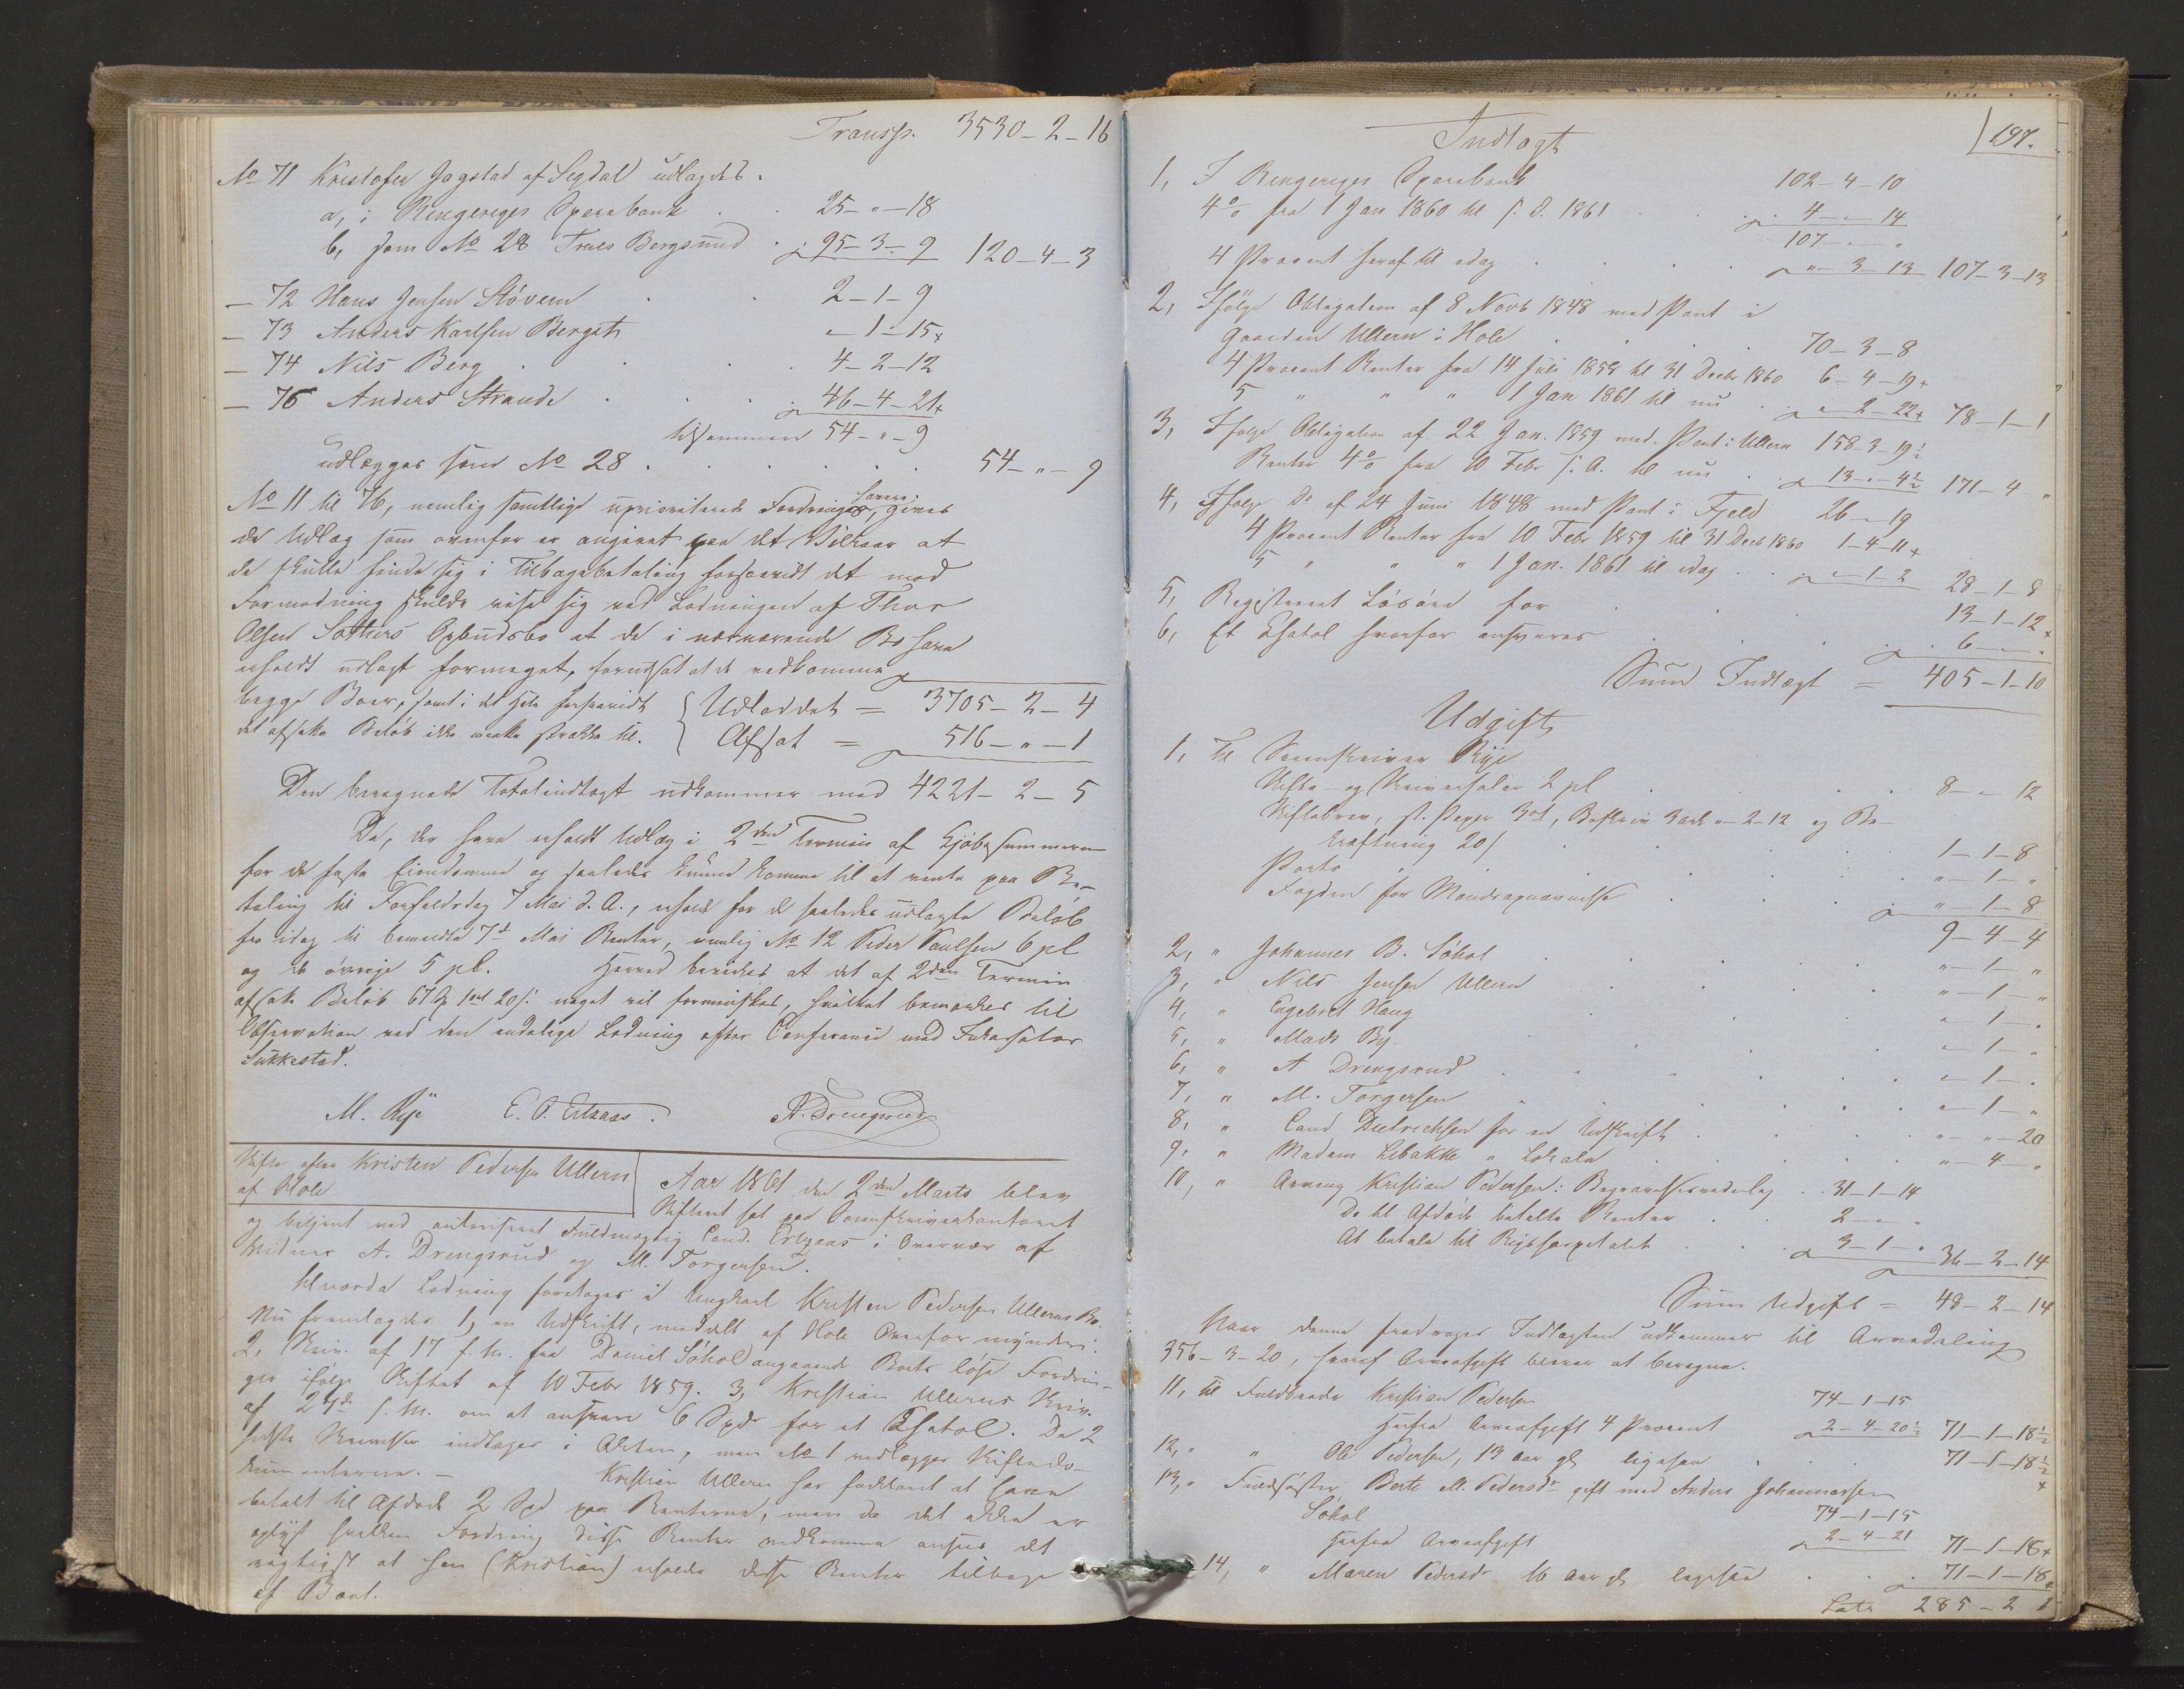 Transp. 3530-2-16
No 71 Kristofer Jagstad af Sigdal udlagdes.
a, i Ringeriges Sparebank . . 25-"-18
b, som No 28 Truls Bergsund . 95-3-9 120-4-3
- 72 Hans Jensen Støveren . . 2-1-9
- 73 Anders Karlsen Berget "-1-15
- 74 Nils Berg . . . 4-2-12
- 76 Anders Strande . . . 46-4-21
tilsammen 54-"-9
udlægges som No 28 . . . . . . 54-"-9
No 11 til 76, nemlig samtlige uprioriterede Fordringshavere, gives
de Udlæg som ovenfor er angivet paa det Vilkaar at
de skulle finde sig i Tilbagebetaling forsaavidt det mod
Formodning skulde vise sig ved Lodningen af Thor
Olsen Opbudsbo at de i nærværende Bo have
erholdt udlagt formeget, forudsat at de vedkomme
begge Boer, samt i det Hele forsaavidt { Udloddet = 3705-2-4
det afsatte Beløb ikke maatte strække til. { Afsat = 516-"-1
Den beregnede Totalindtægt udkommer med 4221-2-5
De, der have erholdt Udlæg i 2den Termin af Kjøbesummerne
for de faste Eiendomme og saaledes kunne komme til at vente paa Be-
taling til Forfaldsdag 7 Mai d. A., erholde for de saaledes udlagte Beløb
fra idag til bemeldte 7de Mai Renter, nemlig No 12 Peder Paulsen 6 pCt
og de øvrige 5 pCt. Herved bevirkes at det af 2den Termin
afsatte Beløb 67 Spd 1 ort 20 s. noget vil formindskes, hvilket bemærkes til
Observation ved den endelige Lodning efter Conferance med Inkassator
Sukkestad.
M. Rye E. O. Erlzaas. A. Drengsrud
Skifte efter Kristen Pedersen Ullern
af Hole
Aar 1861 den 2den Marts blev
Skifteret sat paa Sorenskriverkontoret
og betjent ved autoriseret Fuldmægtig Cand. Erlzaas i Overvær af
Vidner A. Drengsrud og M. Torgersen.
Hvorda Lodning foretoges i Ungkarl Kristen Pedersen Ullerns Bo.
Nu fremlagdes 1, en Udskrift, meddelt af Hole Overformynderi:
2, Skriv. af 17 f. M. fra Daniel Søhol angaaende Boets løse Fordrin-
ger ifølge Skiftet af 10 Febr 1859. 3, Kristian Ullerns Skriv.
af 27de f. M. om at ansvare 6 Spdr for et Chatol. De 2
sidste Skrivelser indtages i Akten, men No 1 vedlægges Skiftedo-
kumenterne. - Kristian Ullern har forklaret at have
betalt til Afdøde 2 Spd paa Renterne, men da det ikke er
oplyst hvilken Fordring disse Renter vedkomme ansees det
rigtigst at han (Kristian) erholder disse Renter tilbage
af Boet.
197.
Indtægt
1, I Ringeriges Sparebank 102-4-10
4% fra 1 Jan 1860 til s. D. 1861 . . 4-"-14
107-"-"
4 Procent heraf til idag . . . "-3-13 107-3-13
2, Ifølge Obligation af 8 Novb 1848 med Pant i
Gaarden Ullern i Hole . . . 70-3-8
4 Procent Renter fra 14 Juli 1858 til 31 Decbr 1860 6-4-19
5 " " " 1 Jan 1861 til nu . "-2-22 78-1-1
3, Ifølge Obligation af 22 Jan. 1859 med Pant i Ullern 158-3-19½
Renter 4% fra 10 Febr s. A. til nu . 13-"-4½ 171-4-"
4, Ifølge Do af 24 Juni 1848 med Pant i Fjeld 26-"-19
4 Procent Renter fra 10 Febr 1859 til 31 Decb 1860 1-4-11
5 " " " 1 Jan. 1861 til idag . . "-1-2 28-1-8
5, Registreret Løsøre for . . . 13-1-12
6, Et Chatol hvorfor ansvares . . . 6-"-"
Sum Indtægt = 405-1-10
Udgift
1, Til Sorenskriver Rye
Skifte- og Skriversalær 2 pCt . . . 8-"-12
Skiftebrev, st. Papir 3 ort, Beskriv 3 Ark "-2-12 og Be-
kræftning 20 s . . . 1-1-8
Porto . . . "-1-"
Fogden for Mændsopnævnelse . . . "-1-8
9-4-4
2, " Johannes B. Søhol . . . "-1-"
3, " Nils Jensen Ullern . . . "-1-"
4, " Engebret Haug . . . "-1-"
5, " Mads By . . . "-1-"
6, " A Drengsrud . . . "-1-"
7, " M. Torgersen . . . "-1-"
8, " Cand Dietrichsen for en Udskrift . . . "-"-20
9, " Madam Libakke " Lokale . . . "-4-"
10, " Arving Kristian Pedersen: Begravelsesvederlag . . 31-1-14
De til Afdøde betalte Renter . . 2-"-"
At betale til Rigshospitalet . . 3-1-" 36-2-14
Sum Udgift = 48-2-14
Naar denne fradrages Indtægten udkommer til Arvedeling
356-3-20, hvoraf Arveafgift bliver at beregne.
11, til Fuldbroder Kristian Pedersen 74-1-15
Herfra Arveafgift 4 Procent 2-4-20½ 71-1-18½
12, " " Ole Pedersen, 13 Aar gl ligesaa . . 71-1-18½
13, " Fuldsøster Berte M. Pedersdr gift med Anders Johannesen
Søhol 74-1-15
Herfra Arveafgift 2-4-21 71-1-18
14, " Maren Pedersdr 16 Aar gl ligesaa . . . 71-1-18
Lat. 285-2-1